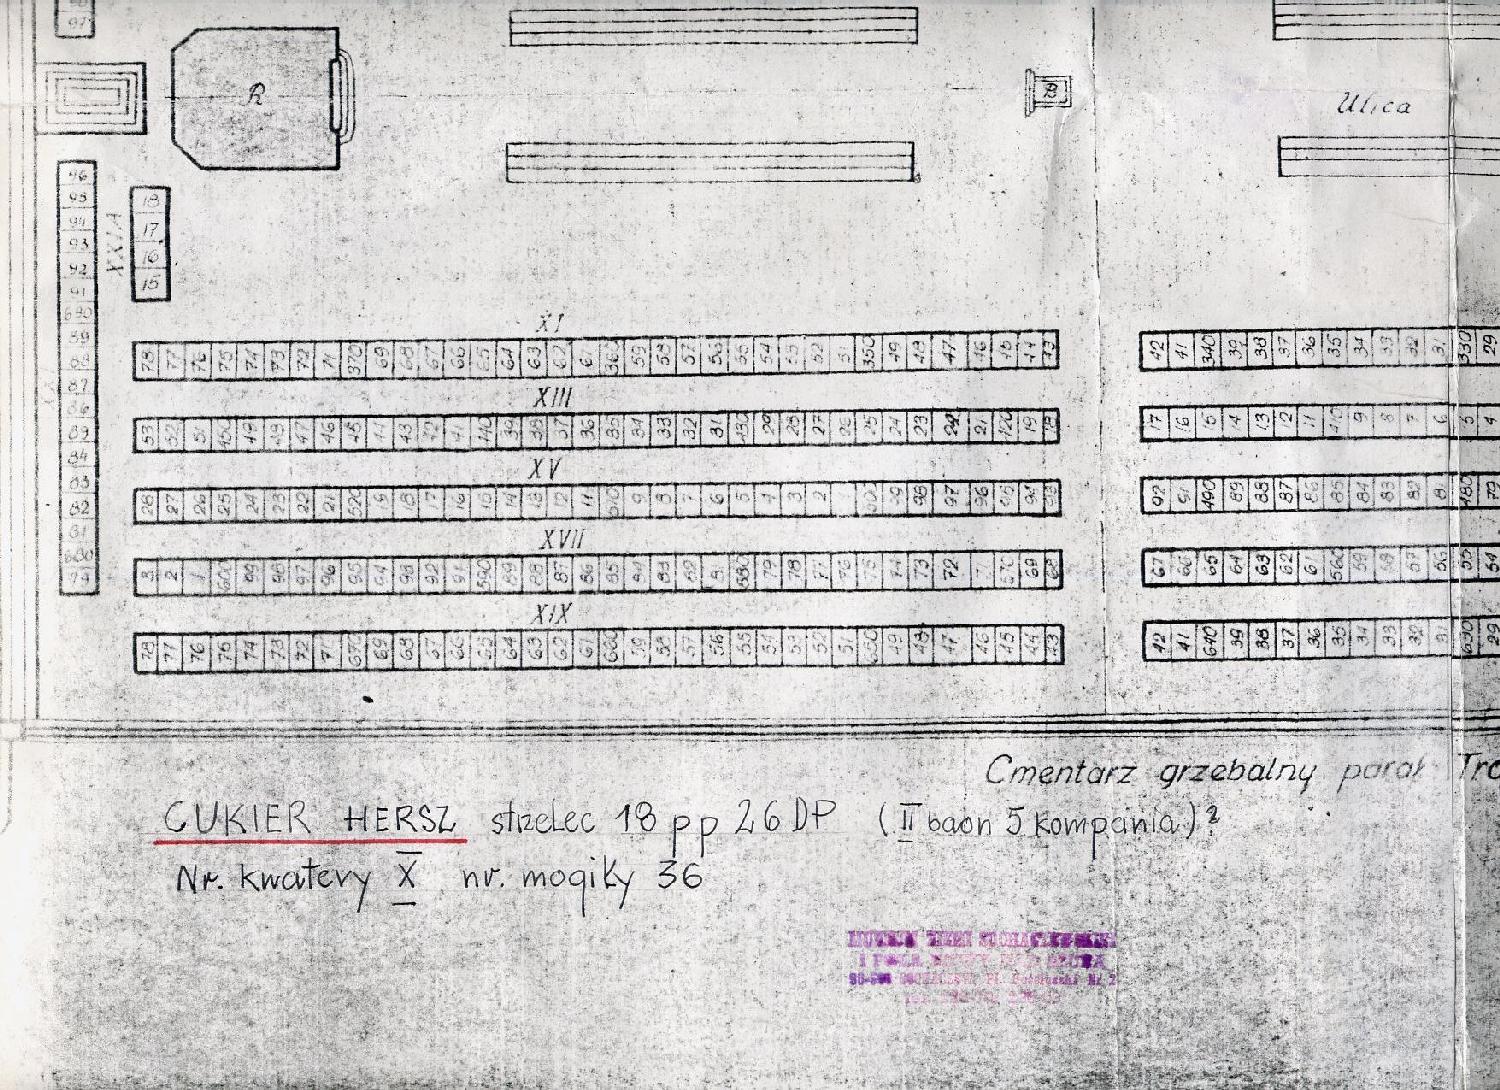 R
Ulica
96
95
94
93
92
91
690
89
88
87
86
84
83
82
81
680
79
XXIA
18
17
16
15
XI
78 77 76 75 74 73 72 71 370 69 68 67 66 65 64 63 62 61 360 59 58 57 56 55 54 53 52 51 350 49 48 47 46 45 44 43
42 41 340 39 38 37 36 35 34 33 32 31 330 29
XIII
53 52 51 450 49 48 47 46 45 44 43 42 41 440 39 38 37 36 35 34 33 32 31 430 29 28 27 26 25 24 23 22 21 420 19 18
17 16 15 14 13 12 11 410 9 8 7 6 5 4
XV
28 27 26 25 24 23 22 21 520 19 18 17 16 15 14 13 12 11 510 9 8 7 6 5 4 3 2 1 500 99 98 97 96 95 94 93
92 91 490 89 88 87 86 85 84 83 82 81 480 79
XVII
3 2 1 600 99 98 97 96 95 94 93 92 91 590 89 88 87 86 85 84 83 82 81 580 79 78 77 76 75 74 73 72 71 570 69 68
67 66 65 64 63 62 61 560 59 58 57 56 55 54
XIX
78 77 76 75 74 73 72 71 670 69 68 67 66 65 64 63 62 61 660 59 58 57 56 55 54 53 52 51 650 49 48 47 46 45 44 43
42 41 640 39 38 37 36 35 34 33 32 31 630 29
Cmentarz grzebalny paraf Tro
CUKIER HERSZ strzelec 18 pp 26 DP (II baon 5 kompania)?
Nr. kwatery X nr. mogiły 36
MUZEUM ZIEMI SOCHACZEWSKIEJ
I POLA BITWY NAD BZURĄ